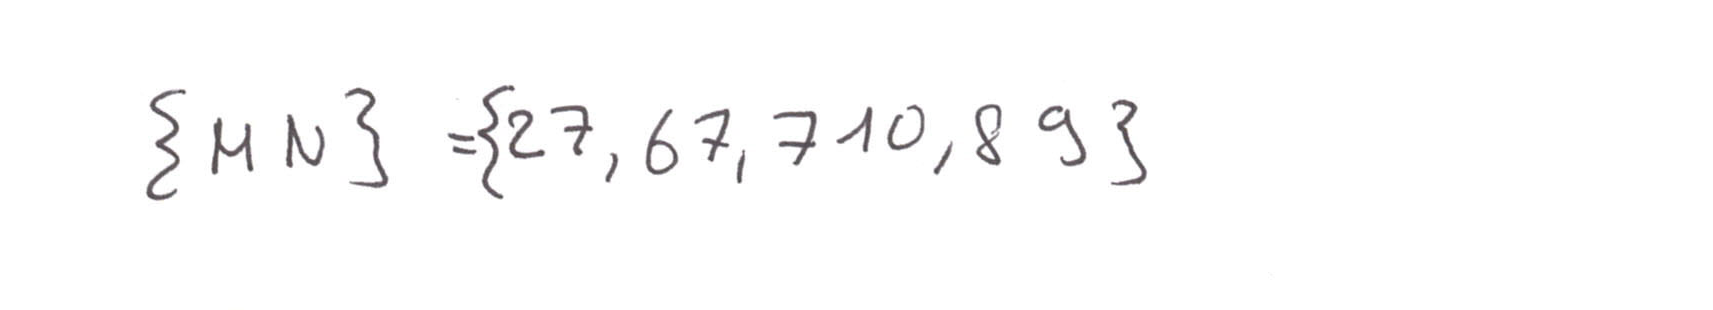 {MN} = {27, 67, 710, 89}